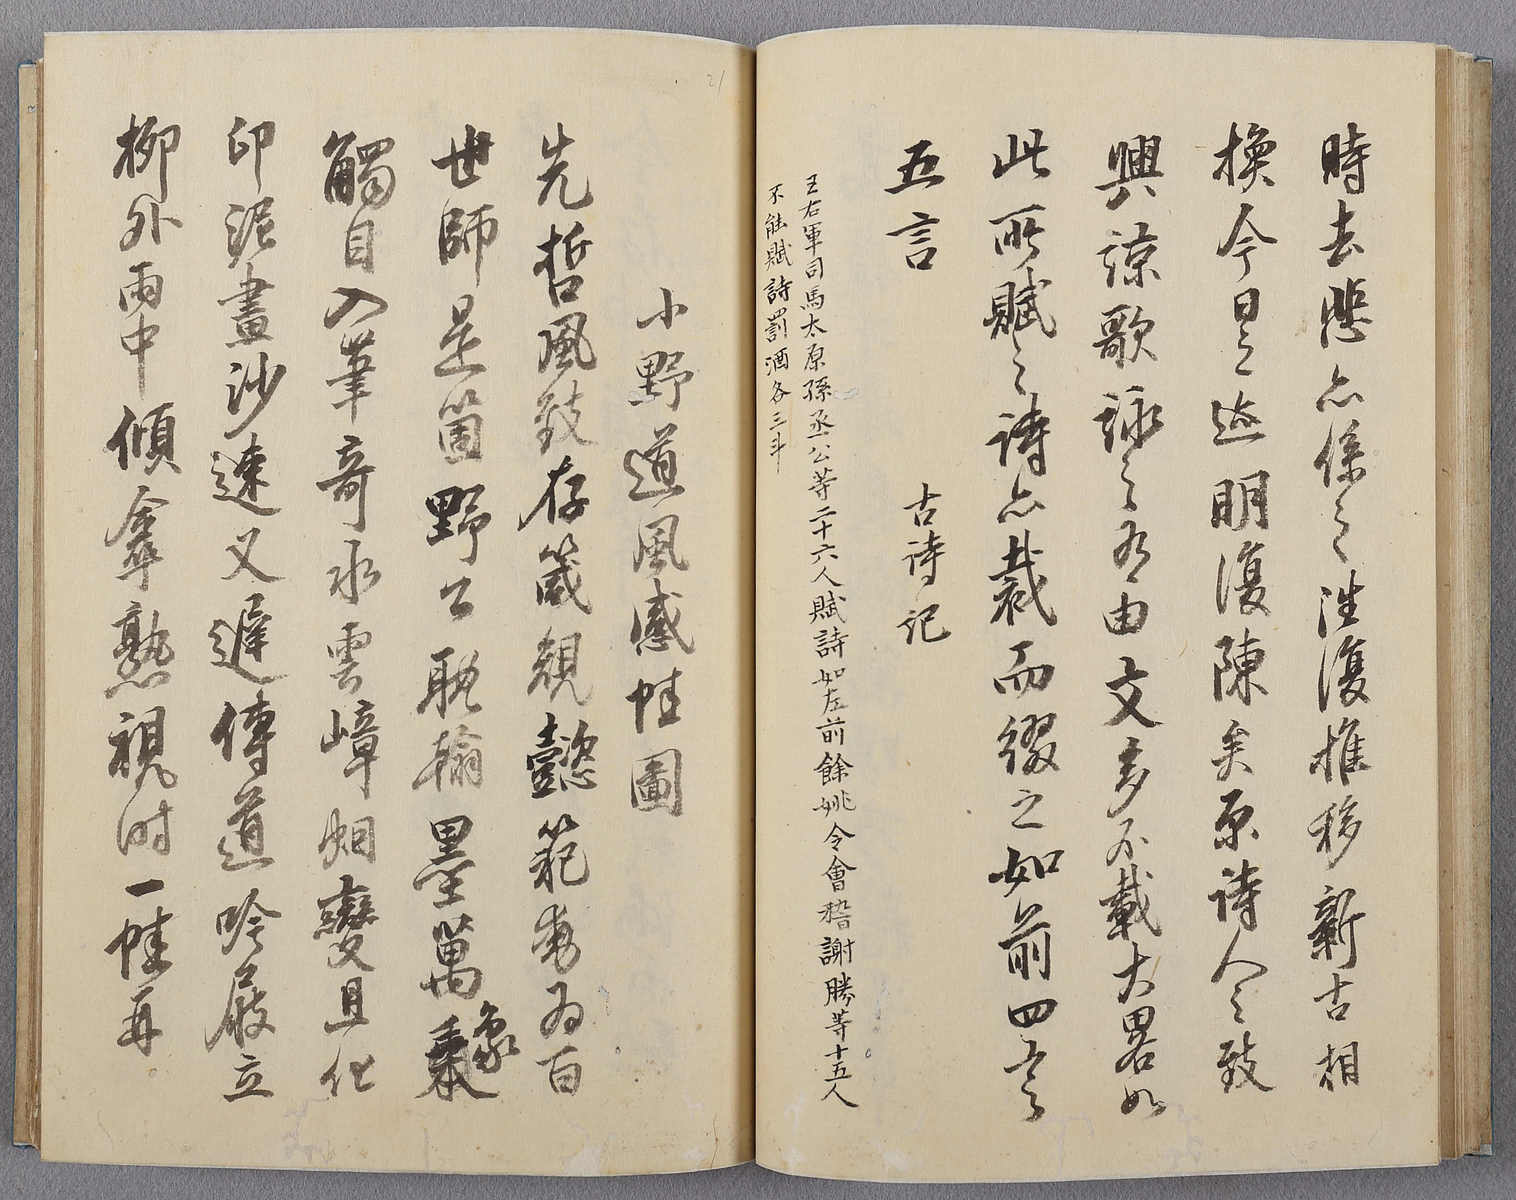 時去悲亦係之往復推移新古相
換今日之迹明復陳矣原詩人之致
興諒歌詠之有由文多不載大略如
此所賦之詩亦裁而綴之如前四言
五言
古詩記
王右軍司馬太原孫丞公等二十六人賦詩如左前餘姚令會稽謝勝等十五人
不能賦詩罰酒各三斗
小野道風感蛙圖
先哲風致存箴規懿範為百
世師是箇野公耽翰墨萬象
觸目入筆奇水雲嶂烟變且化
印泥畫沙速又遲傳道吟屐立
柳外雨中傾傘熟視時一蛙再
21